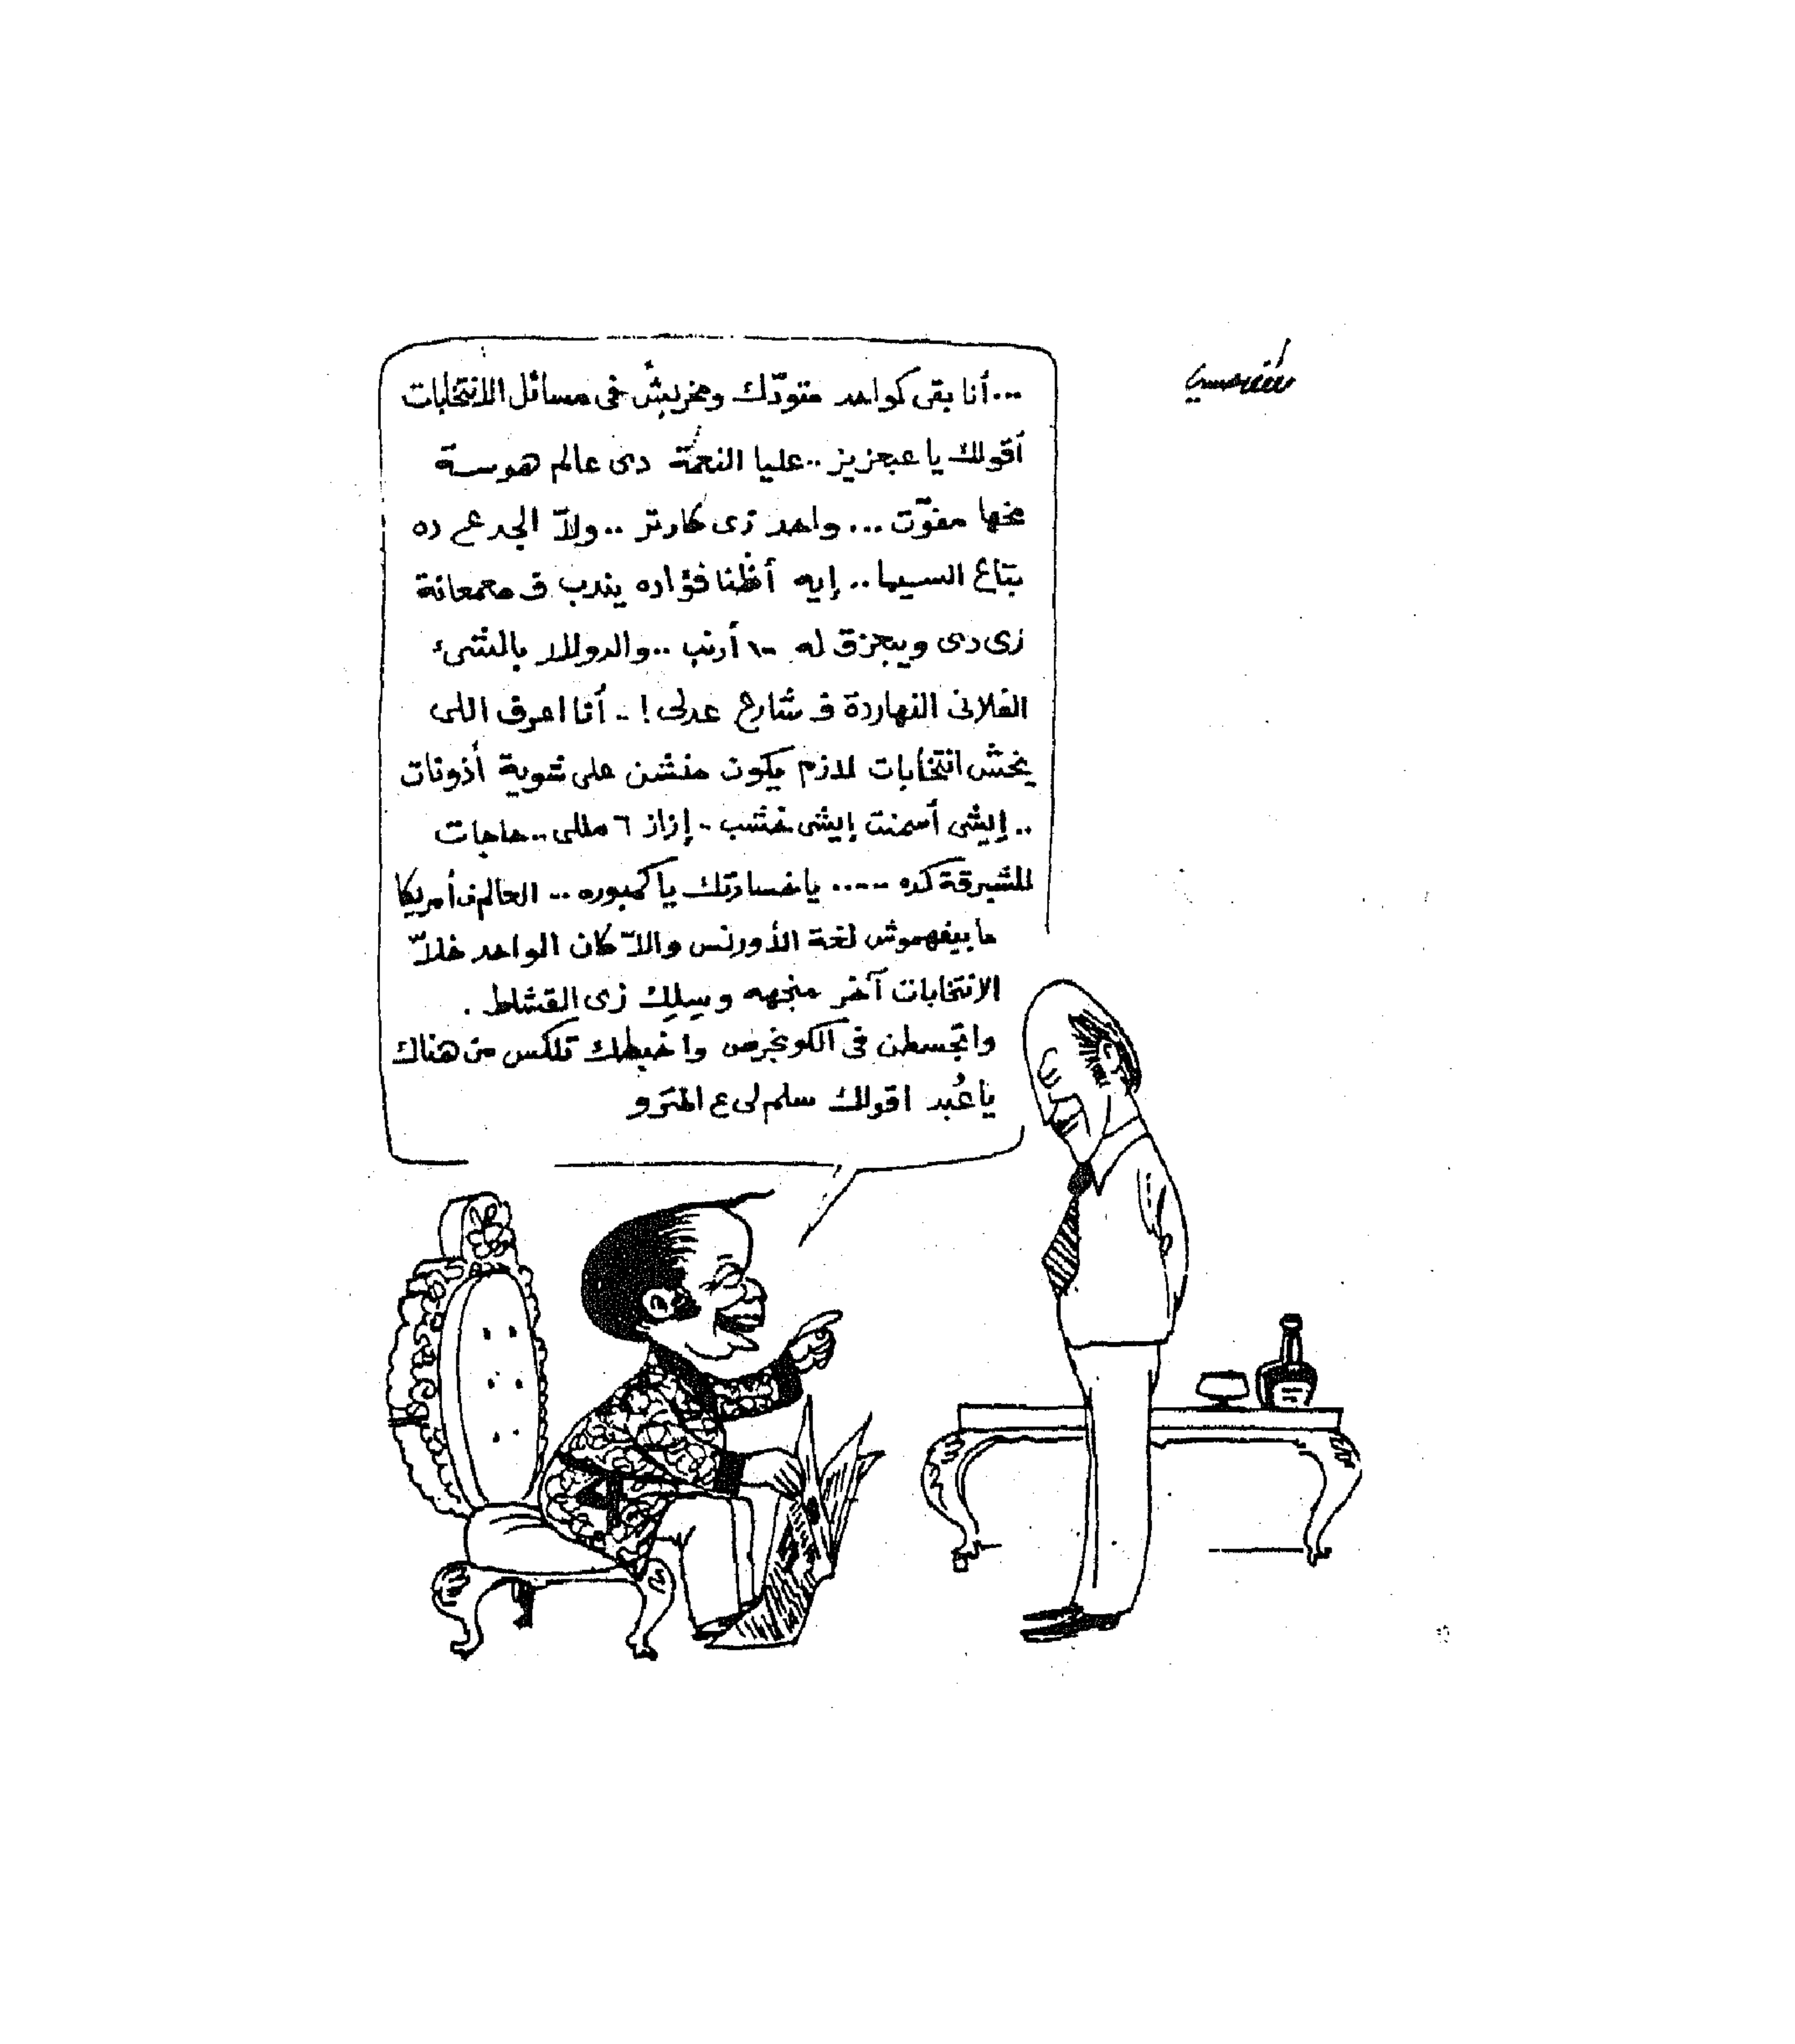 ...أنا بقى كواحد متودّك ومخربش في مسائل الانتخابات
أقولك يا عبعزيز..عليا النعمة دى عالم هوسة
مخها مفوّت... واحد زى كارتر ..ولاّ الجدع ده
بتاع السيما.. إيه أظنا فؤاده يندب ف معمعانة
زى دى ويبجزق له ١٠٠ أرنب ..والدولار بالشىء
الفلانى النهاردة ف شارع عدلى! .. أنا اعرف اللى
يخش انتخابات لازم يكون منشن على شوية أذونات
.. إيشى أسمنت إيشى خشب .. إزاز ٦ مللى .. حاجات
للشبرقة كده ..... يا خسارتك يا كمبوره .. العالم ف أمريكا
ما بيفهموش لغة الأورنس واللاّ كان الواحد خلاّ
الانتخابات آخر منجهه وسِلِك زى القشاط .
واتجسطن فى الكونجرس واخبطلك تلكس من هناك
يا عُبد اقولك سلم لى ع المترو